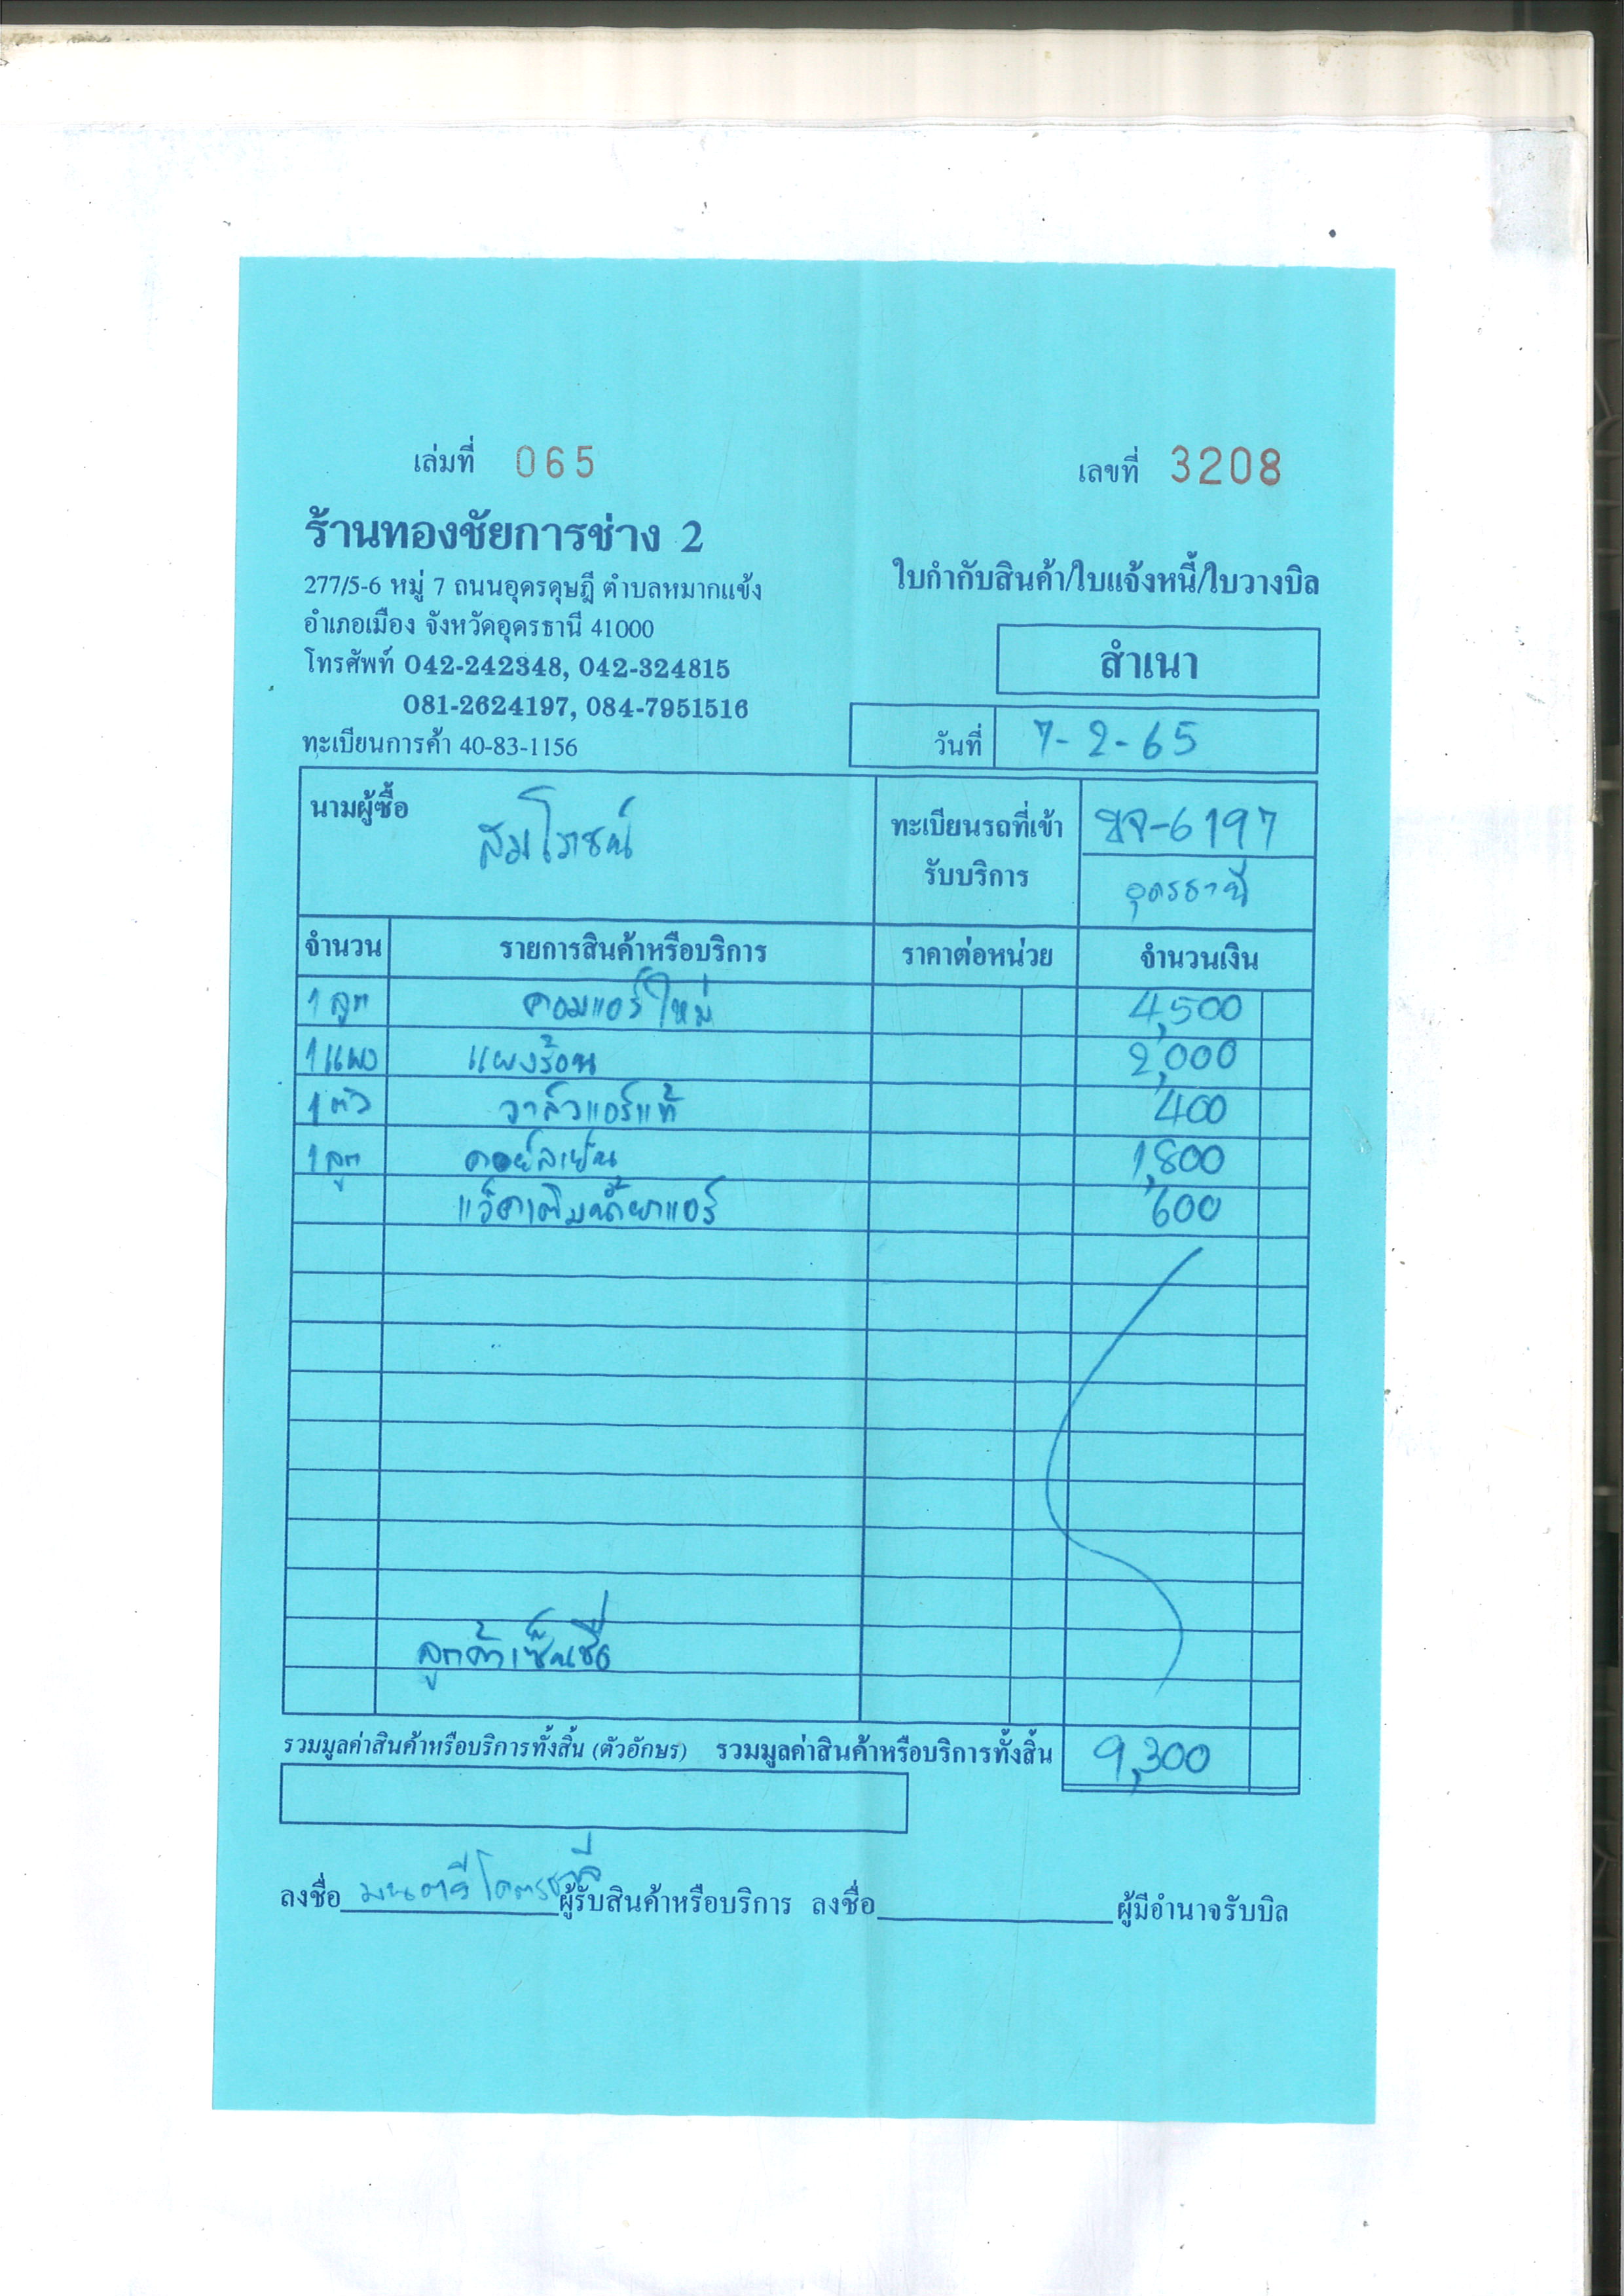 เล่มที่ 065 เลขที่ 3208
ร้านทองชัยการช่าง 2
277/5-6 หมู่ 7 ถนนอุดรดุษฎี ตำบลหมากแข้ง
อำเภอเมือง จังหวัดอุดรธานี 41000
โทรศัพท์ 042-242348, 042-324815
081-2624197, 084-7951516
ทะเบียนการค้า 40-83-1156
ใบกำกับสินค้า/ใบแจ้งหนี้/ใบวางบิล
สำเนา
วันที่ 7-2-65
นามผู้ซื้อ สมโภชน์
ทะเบียนรถที่เข้ารับบริการ 6197
อุดรธานี
จำนวน รายการสินค้าหรือบริการ ราคาต่อหน่วย จำนวนเงิน
1 ลูก คอมแอร์ใหม่ 4,500
1 แผง แผงร้อน 2,000
1 ตัว วาล์วแอร์แท้ 400
1 ลูก คอย์ลเย็น 1,800
แว็คเติมน้ำยาแอร์ 600
ลูกค้าเซ็นชื่อ
รวมมูลค่าสินค้าหรือบริการทั้งสิ้น (ตัวอักษร) รวมมูลค่าสินค้าหรือบริการทั้งสิ้น 9,300
ลงชื่อ มนตรี ผู้รับสินค้าหรือบริการ ลงชื่อ ผู้มีอำนาจรับบิล